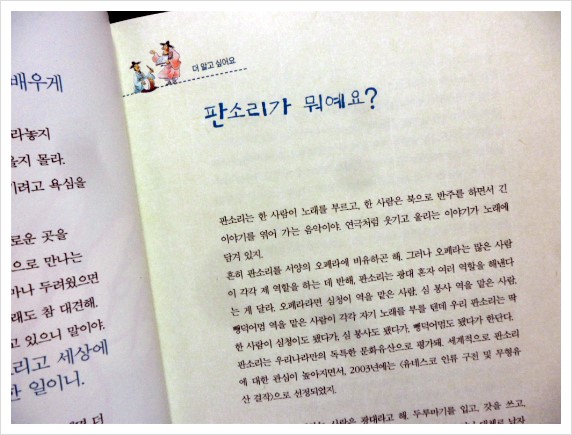 배우게
라놓지
을지 몰라.
기려고 욕심을
로운 곳을
으로 만나는
마나 두려웠으면
래도 참 대견해.
고 있으니 말이야.
리고 세상에
한 일이니.
더
더 알고 싶어요
판소리가 뭐예요?
판소리는 한 사람이 노래를 부르고, 한 사람은 북으로 반주를 하면서 긴
이야기를 엮어 가는 음악이야. 연극처럼 웃기고 울리는 이야기가 노래에
담겨 있지.
흔히 판소리를 서양의 오페라에 비유하곤 해. 그러나 오페라는 많은 사람
이 각각 제 역할을 하는 데 반해, 판소리는 광대 혼자 여러 역할을 해낸다
는 게 달라. 오페라라면 심청이 역을 맡은 사람, 심 봉사 역을 맡은 사람,
뺑덕어멈 역을 맡은 사람이 각각 자기 노래를 부를 텐데 우리 판소리는 딱
한 사람이 심청이도 됐다가, 심 봉사도 됐다가, 뺑덕어멈도 됐다가 한단다.
판소리는 우리나라만의 독특한 문화유산으로 평가돼. 세계적으로 판소리
에 대한 관심이 높아지면서, 2003년에는 〈유네스코 인류 구전 및 무형유
산 걸작〉으로 선정되었지.
사람은 광대라고 해. 두루마기를 입고, 갓을 쓰고,
남자